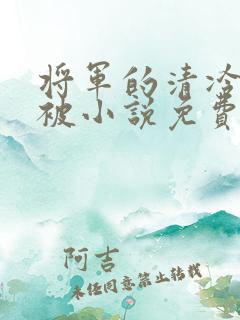 将军的清冷
被小说免費
阿吉
未经同意禁止转载